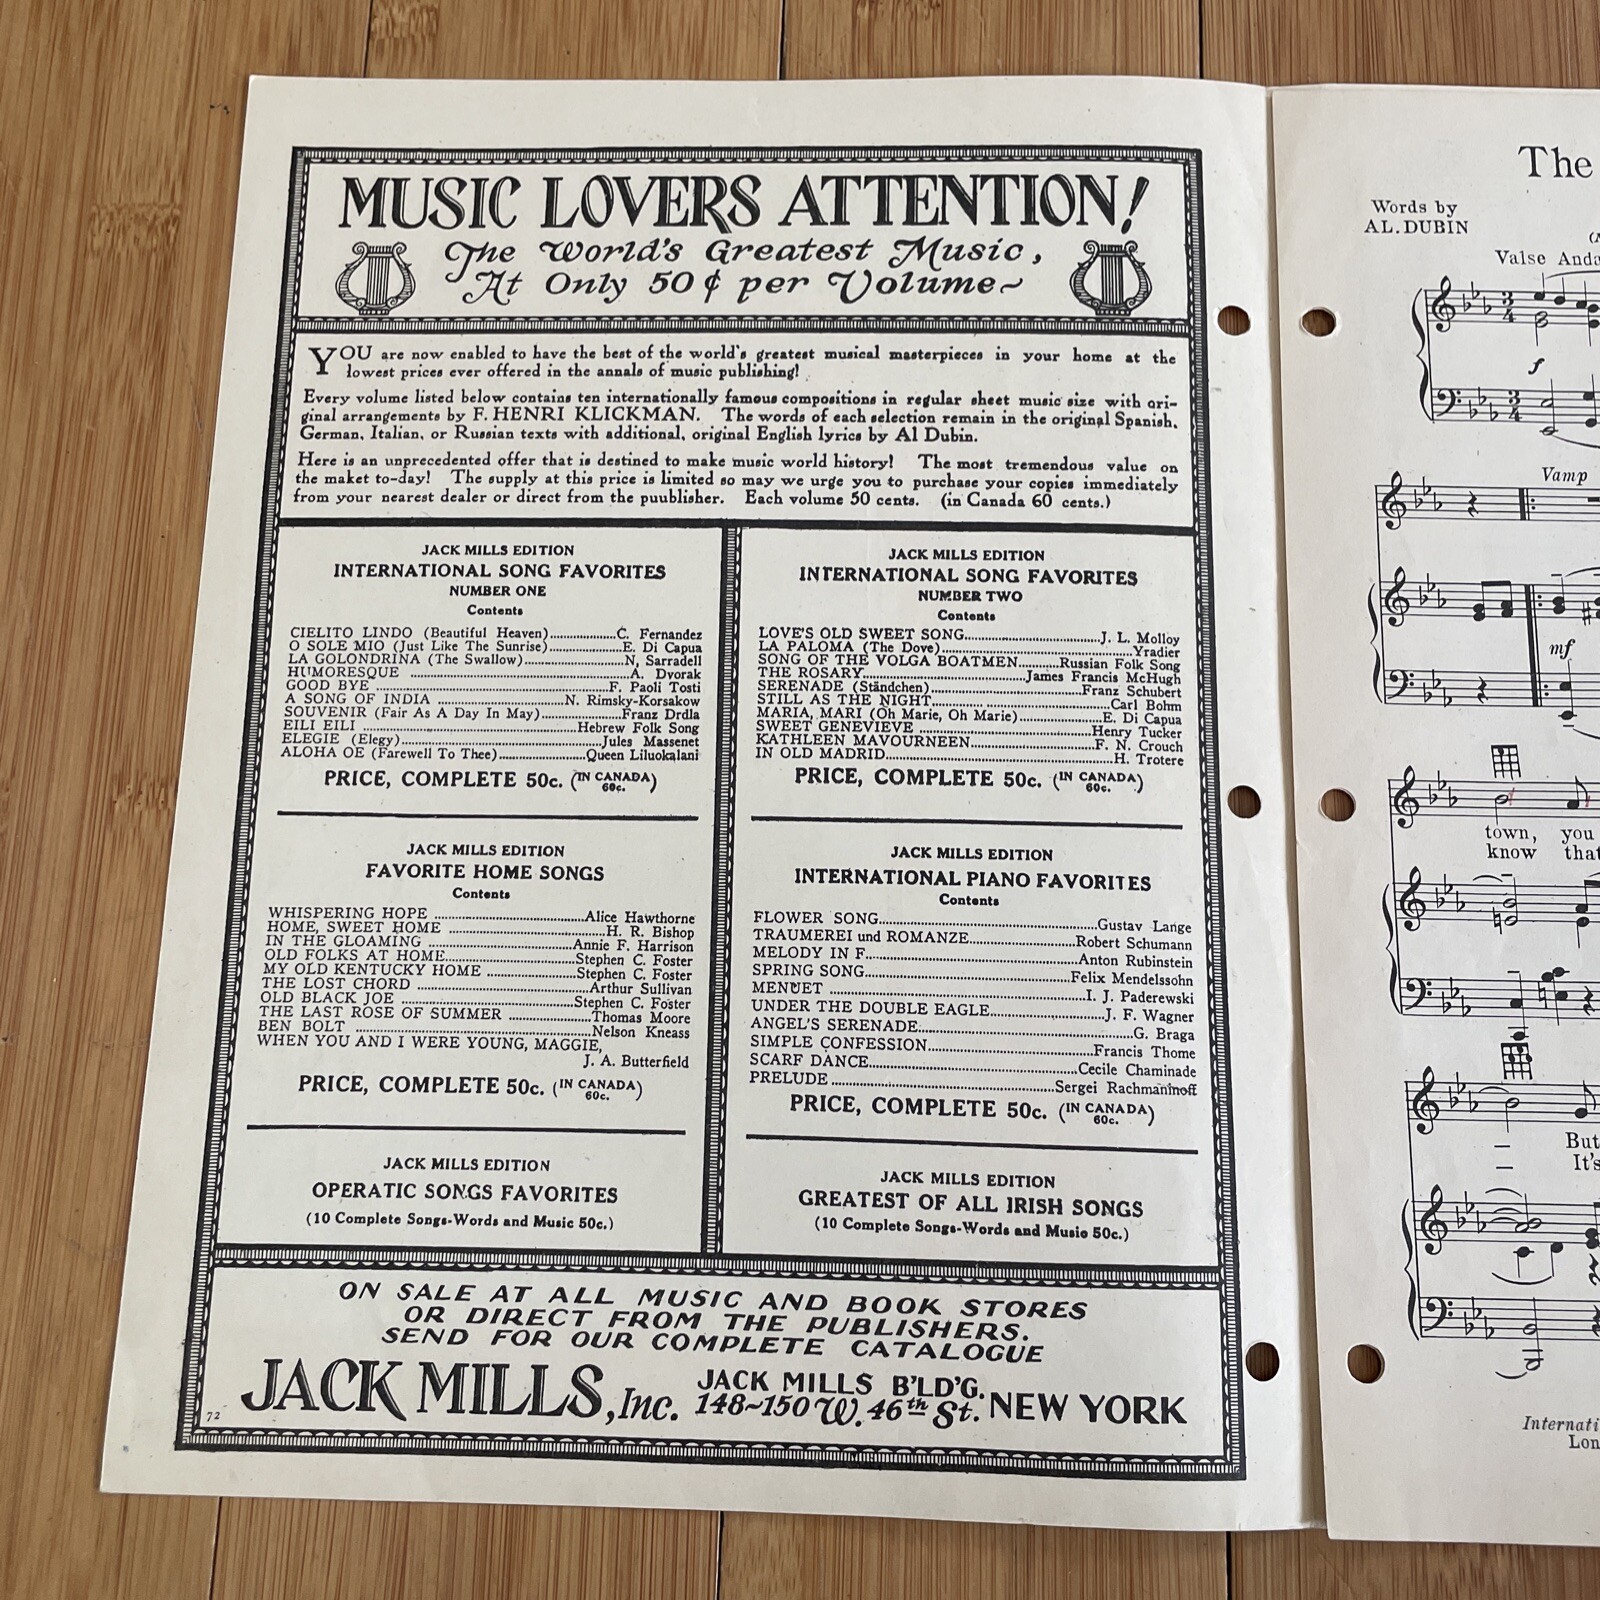 MUSIC LOVERS ATTENTION!
The World's Greatest Music,
At Only 50¢ per Volume~
YOU are now enabled to have the best of the world's greatest musical masterpieces in your home at the
lowest prices ever offered in the annals of music publishing!
Every volume listed below contains ten internationally famous compositions in regular sheet music size with ori-
ginal arrangements by F. HENRI KLICKMAN. The words of each selection remain in the original Spanish,
German, Italian, or Russian texts with additional, original English lyrics by Al Dubin.
Here is an unprecedented offer that is destined to make music world history! The most tremendous value on
the maket to-day! The supply at this price is limited so may we urge you to purchase your copies immediately
from your nearest dealer or direct from the puublisher. Each volume 50 cents. (in Canada 60 cents.)
JACK MILLS EDITION
INTERNATIONAL SONG FAVORITES
NUMBER ONE
Contents
CIELITO LINDO (Beautiful Heaven)..................C. Fernandez
O SOLE MIO (Just Like The Sunrise)..................E. Di Capua
LA GOLONDRINA (The Swallow)..................N, Sarradell
HUMORESQUE ..................A. Dvorak
GOOD BYE ..................F. Paoli Tosti
A SONG OF INDIA ..................N. Rimsky-Korsakow
SOUVENIR (Fair As A Day In May)..................Franz Drdla
EILI EILI ..................Hebrew Folk Song
ELEGIE (Elegy)..................Jules Massenet
ALOHA OE (Farewell To Thee)..................Queen Liluokalani
PRICE, COMPLETE 50c. (IN CANADA 60c.)
JACK MILLS EDITION
FAVORITE HOME SONGS
Contents
WHISPERING HOPE ..................Alice Hawthorne
HOME, SWEET HOME ..................H. R. Bishop
IN THE GLOAMING ..................Annie F. Harrison
OLD FOLKS AT HOME..................Stephen C. Foster
MY OLD KENTUCKY HOME ..................Stephen C. Foster
THE LOST CHORD ..................Arthur Sullivan
OLD BLACK JOE ..................Stephen C. Foster
THE LAST ROSE OF SUMMER ..................Thomas Moore
BEN BOLT ..................Nelson Kneass
WHEN YOU AND I WERE YOUNG, MAGGIE,
J. A. Butterfield
PRICE, COMPLETE 50c. (IN CANADA 60c.)
JACK MILLS EDITION
OPERATIC SONGS FAVORITES
(10 Complete Songs-Words and Music 50c.)
JACK MILLS EDITION
INTERNATIONAL SONG FAVORITES
NUMBER TWO
Contents
LOVE'S OLD SWEET SONG..................J. L. Molloy
LA PALOMA (The Dove)..................Yradier
SONG OF THE VOLGA BOATMEN..................Russian Folk Song
THE ROSARY..................James Francis McHugh
SERENADE (Ständchen)..................Franz Schubert
STILL AS THE NIGHT..................Carl Bohm
MARIA, MARI (Oh Marie, Oh Marie)..................E. Di Capua
SWEET GENEVIEVE ..................Henry Tucker
KATHLEEN MAVOURNEEN..................F. N. Crouch
IN OLD MADRID..................H. Trotere
PRICE, COMPLETE 50c. (IN CANADA 60c.)
JACK MILLS EDITION
INTERNATIONAL PIANO FAVORITES
Contents
FLOWER SONG..................Gustav Lange
TRAUMEREI und ROMANZE..................Robert Schumann
MELODY IN F..................Anton Rubinstein
SPRING SONG..................Felix Mendelssohn
MENUET ..................I. J. Paderewski
UNDER THE DOUBLE EAGLE..................J. F. Wagner
ANGEL'S SERENADE..................G. Braga
SIMPLE CONFESSION..................Francis Thome
SCARF DANCE..................Cecile Chaminade
PRELUDE..................Sergei Rachmaninoff
PRICE, COMPLETE 50c. (IN CANADA 60c.)
JACK MILLS EDITION
GREATEST OF ALL IRISH SONGS
(10 Complete Songs-Words and Music 50c.)
ON SALE AT ALL MUSIC AND BOOK STORES
OR DIRECT FROM THE PUBLISHERS.
SEND FOR OUR COMPLETE CATALOGUE
JACK MILLS, Inc. JACK MILLS B'LD'G. 148~150 W. 46th St. NEW YORK
72
The
Words by
AL. DUBIN
Valse Anda
f
Vamp
mf
town, you
know that
— But
— It's
Internati
Lon